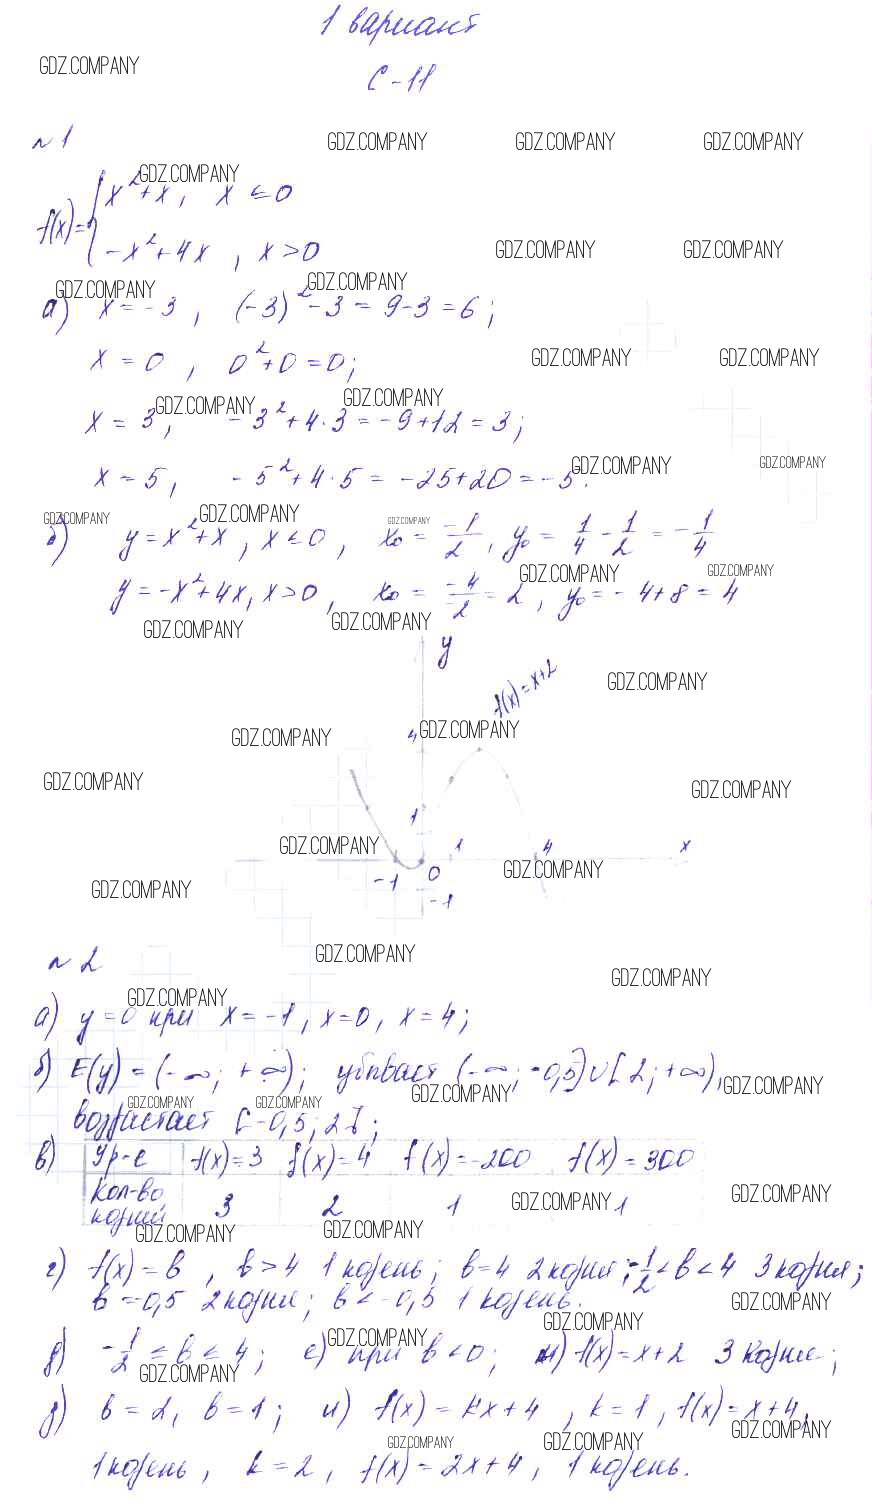 1 вариант
GDZ.COMPANY
С-11
№1
GDZ.COMPANY GDZ.COMPANY GDZ.COMPANY
GDZ.COMPANY
x²+x, x ≤ 0
f(x)={
-x²+4x, x>0
GDZ.COMPANY GDZ.COMPANY
GDZ.COMPANY GDZ.COMPANY
а) x=-3, (-3)²-3=9-3=6;
x=0, 0²+0=0;
GDZ.COMPANY GDZ.COMPANY
GDZ.COMPANY GDZ.COMPANY
x=3, -3²+4·3=-9+12=3;
GDZ.COMPANY GDZ.COMPANY
x=5, -5²+4·5=-25+20=-5.
GDZ.COMPANY GDZ.COMPANY GDZ.COMPANY
б) y=x²+x, x≤0, x₀=-1/2, y₀=1/4-1/2=-1/4
GDZ.COMPANY GDZ.COMPANY
y=-x²+4x, x>0, x₀=-4/-2=2, y₀=-4+8=4
GDZ.COMPANY GDZ.COMPANY
y
f(x)=x+2
GDZ.COMPANY
4 GDZ.COMPANY
GDZ.COMPANY
GDZ.COMPANY GDZ.COMPANY
1
GDZ.COMPANY 1 4 x
-1 0 GDZ.COMPANY
GDZ.COMPANY -1
№2
GDZ.COMPANY
GDZ.COMPANY
GDZ.COMPANY
а) y=0 при x=-1, x=0, x=4;
б) E(y)=(-∞; +∞); убывает (-∞; -0,5]∪[2; +∞),
GDZ.COMPANY GDZ.COMPANY
GDZ.COMPANY GDZ.COMPANY
возрастает [-0,5; 2];
в) Ур-е f(x)=3 f(x)=4 f(x)=-200 f(x)=300
Кол-во
корний 3 2 1 1
GDZ.COMPANY GDZ.COMPANY
GDZ.COMPANY GDZ.COMPANY
г) f(x)=b, b>4 1 корень; b=4 2 корня; -1/2<b<4 3 корня;
b=-0,5 2 корня; b<-0,5 1 корень.
GDZ.COMPANY
GDZ.COMPANY
GDZ.COMPANY
д) -1/2≤b≤4; е) при b<0; ж) f(x)=x+2 3 корня;
GDZ.COMPANY
з) b=2, b=1; и) f(x)=kx+4, k=1, f(x)=x+4,
GDZ.COMPANY
GDZ.COMPANY GDZ.COMPANY
1 корень, k=2, f(x)=2x+4, 1 корень.